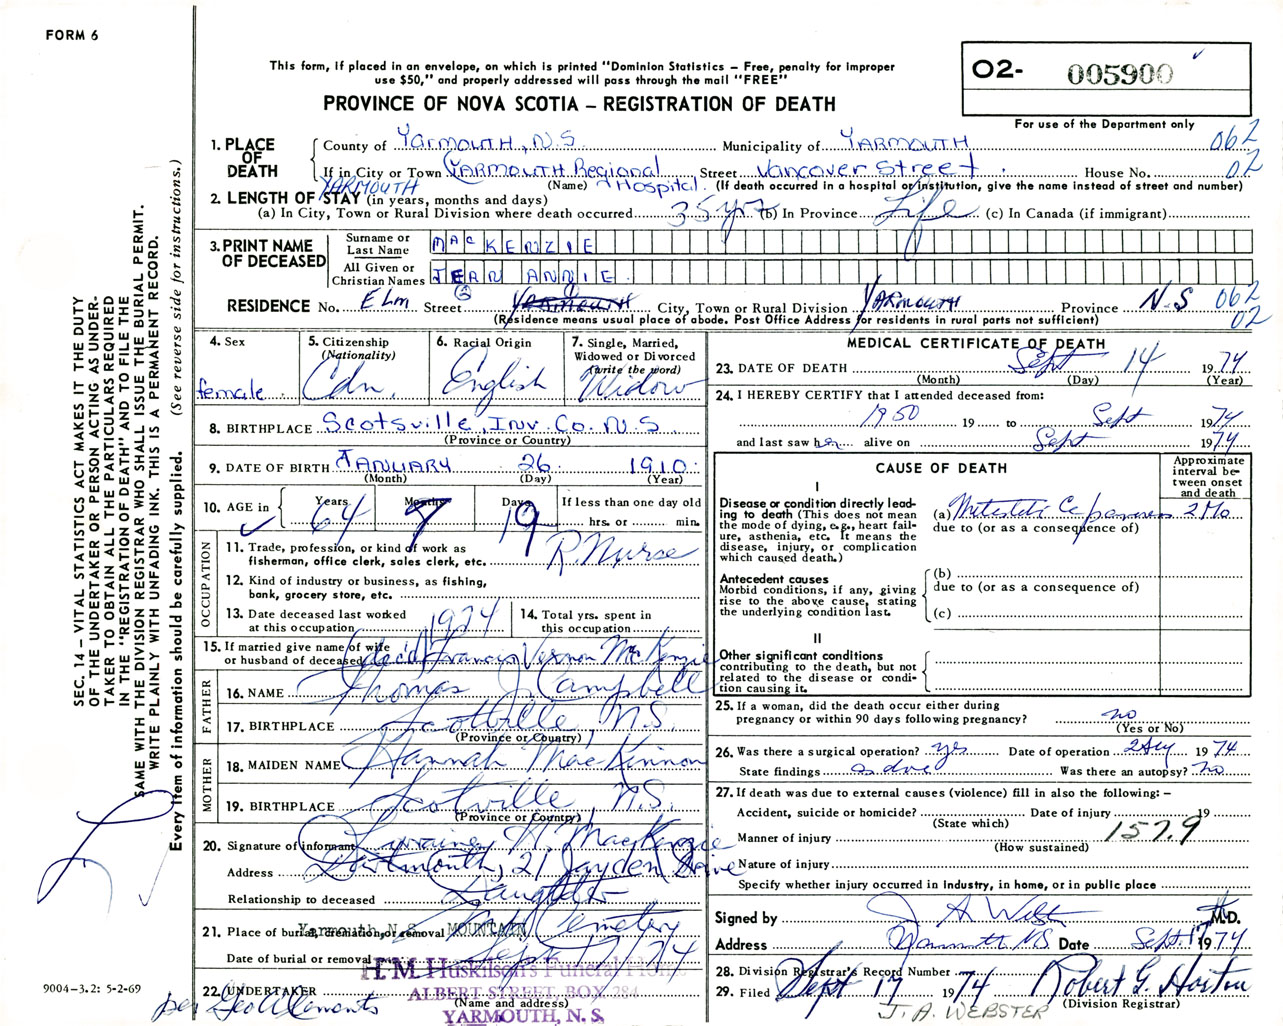 FORM 6
This form, if placed in an envelope, on which is printed "Dominion Statistics – Free, penalty for improper
use $50," and properly addressed will pass through the mail "FREE"
PROVINCE OF NOVA SCOTIA – REGISTRATION OF DEATH
O2- 005900
For use of the Department only
1. PLACE OF DEATH County of Yarmouth, N.S. Municipality of YARMOUTH 062
If in City or Town YARMOUTH Regional Hospital Street Vancover Street House No. 02
YARMOUTH (Name) (If death occurred in a hospital or institution, give the name instead of street and number)
2. LENGTH OF STAY (in years, months and days)
(a) In City, Town or Rural Division where death occurred 35 yrs (b) In Province Life (c) In Canada (if immigrant)
3. PRINT NAME OF DECEASED Surname or Last Name MacKENZIE
All Given or Christian Names JEAN ANNIE
RESIDENCE No. Elm Street YARMOUTH City, Town or Rural Division YARMOUTH Province N.S 062
(Residence means usual place of abode. Post Office Address for residents in rural parts not sufficient) 02
4. Sex female
5. Citizenship (Nationality) Cdn.
6. Racial Origin English
7. Single, Married, Widowed or Divorced (write the word) Widow
8. BIRTHPLACE Scotsville, Inv. Co. N.S
(Province or Country)
9. DATE OF BIRTH JANUARY 26 1910
(Month) (Day) (Year)
10. AGE in Years Months Days If less than one day old
64 7 19 hrs. or min.
OCCUPATION
11. Trade, profession, or kind of work as
fisherman, office clerk, sales clerk, etc. R. Nurse
12. Kind of industry or business, as fishing,
bank, grocery store, etc.
13. Date deceased last worked
at this occupation 1974
14. Total yrs. spent in
this occupation
15. If married give name of wife
or husband of deceased Francis Vernon McKenzie
FATHER
16. NAME Thomas J. Campbell
17. BIRTHPLACE Scotville, N.S.
(Province or Country)
MOTHER
18. MAIDEN NAME Hannah MacKinnon
19. BIRTHPLACE Scotville, N.S.
(Province or Country)
20. Signature of informant H. MacKenzie
Address Dartmouth, 21 Jayden Drive
Relationship to deceased Daughter
21. Place of burial, cremation or removal Yarmouth N.S. MOUNTAIN Cemetery
Date of burial or removal Sept 17 74
H.M. Huskilson's Funeral Home
22. UNDERTAKER ALBERT STREET, BOX 284
(Name and address)
YARMOUTH, N. S.
MEDICAL CERTIFICATE OF DEATH
23. DATE OF DEATH Sept 14 1974
(Month) (Day) (Year)
24. I HEREBY CERTIFY that I attended deceased from:
1950 19 to Sept 1974
and last saw her alive on Sept 1974
CAUSE OF DEATH
Approximate interval between onset and death
I
Disease or condition directly leading to death (This does not mean the mode of dying, e.g., heart failure, asthenia, etc. It means the disease, injury, or complication which caused death.)
(a) Ca pancreas 2 Mo
due to (or as a consequence of)
Antecedent causes
Morbid conditions, if any, giving rise to the above cause, stating the underlying condition last.
(b)
due to (or as a consequence of)
(c)
II
Other significant conditions
contributing to the death, but not related to the disease or condition causing it.
25. If a woman, did the death occur either during
pregnancy or within 90 days following pregnancy? no
(Yes or No)
26. Was there a surgical operation? yes Date of operation 1974
State findings Was there an autopsy? no
27. If death was due to external causes (violence) fill in also the following: –
Accident, suicide or homicide? Date of injury 19
(State which)
Manner of injury 157.9
(How sustained)
Nature of injury
Specify whether injury occurred in Industry, in home, or in public place
Signed by J. A. M.D.
Address Yarmouth NS Date Sept. 17 1974
28. Division Registrar's Record Number
29. Filed Sept 17 1974 Robert G. Horton
(Division Registrar)
J. A. WEBSTER
SEC. 14 – VITAL STATISTICS ACT MAKES IT THE DUTY
OF THE UNDERTAKER OR PERSON ACTING AS UNDER-
TAKER TO OBTAIN ALL THE PARTICULARS REQUIRED
IN THE "REGISTRATION OF DEATH" AND TO FILE THE
SAME WITH THE DIVISION REGISTRAR WHO SHALL ISSUE THE BURIAL PERMIT.
WRITE PLAINLY WITH UNFADING INK. THIS IS A PERMANENT RECORD.
Every item of information should be carefully supplied. (See reverse side for instructions.)
9004-3.2: 5-2-69